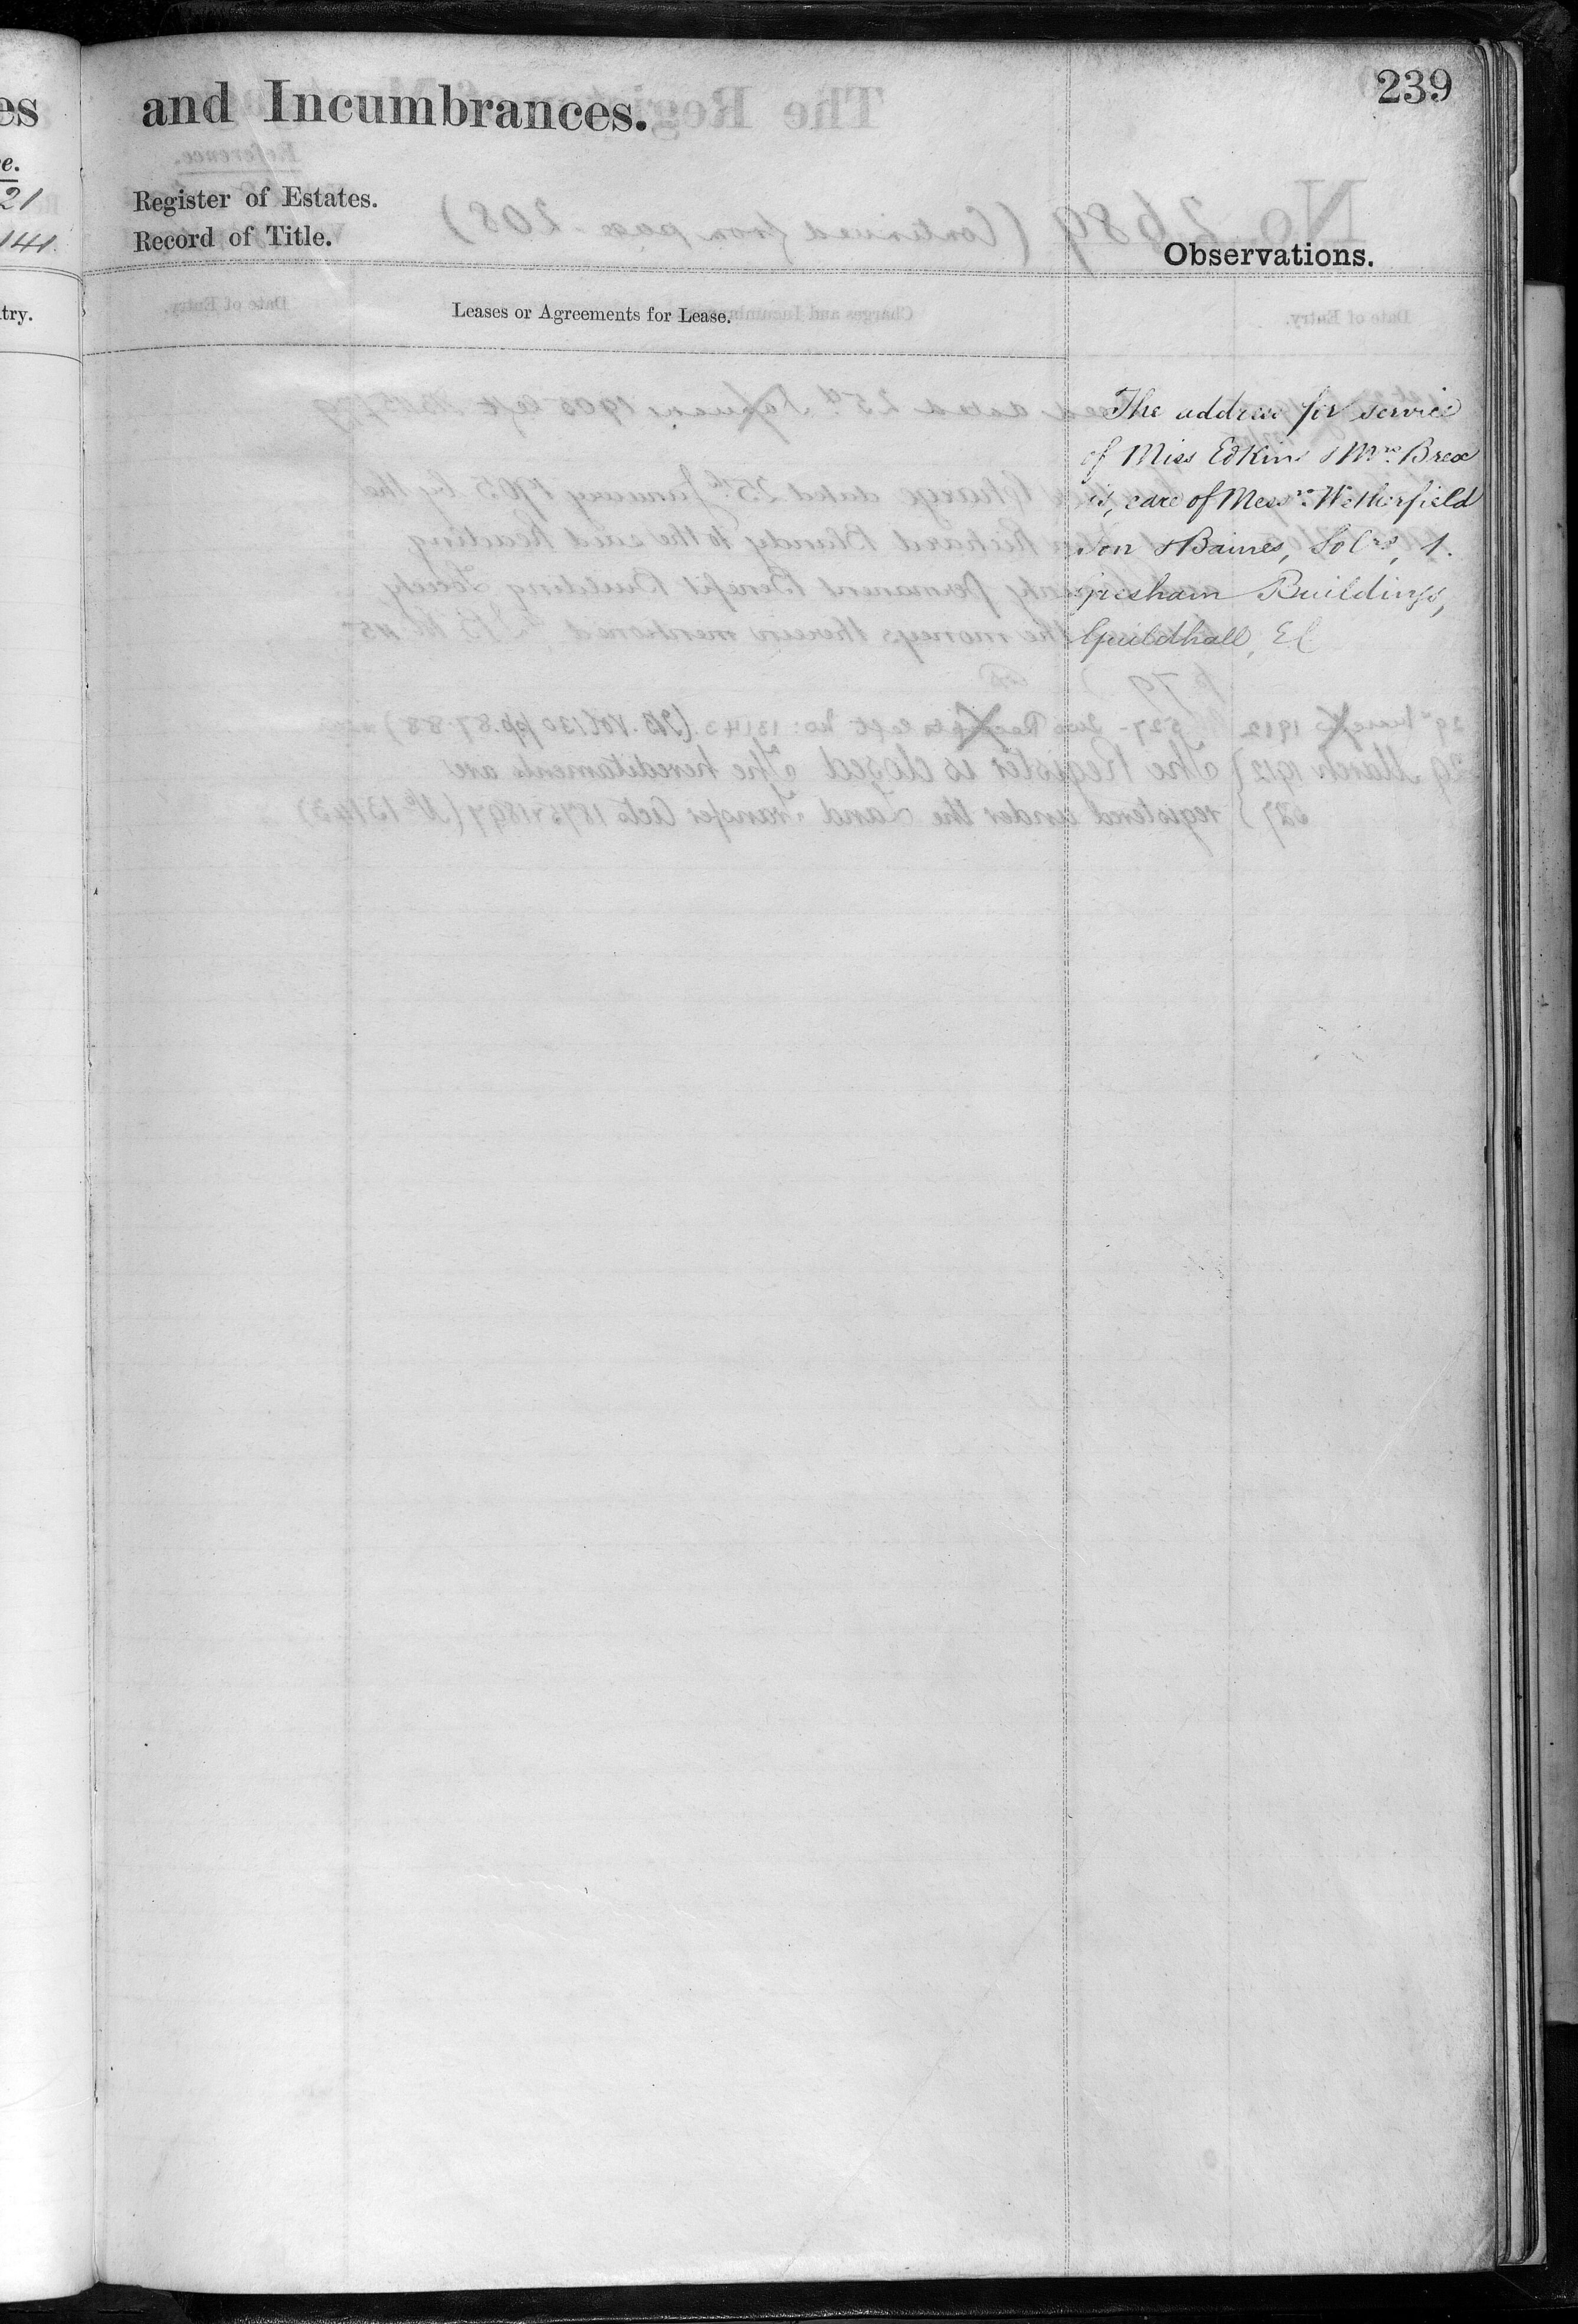 es
e.
21
141
try.
and Incumbrances.
239
Register of Estates.
Record of Title.
Observations.
Leases or Agreements for Lease.
The address for service
of Miss Edkins & Mrs Brex
is, care of Messrs. Wetherfield
Son & Baines, Solrs, 1.
Gresham Buildings,
Guildhall, EC